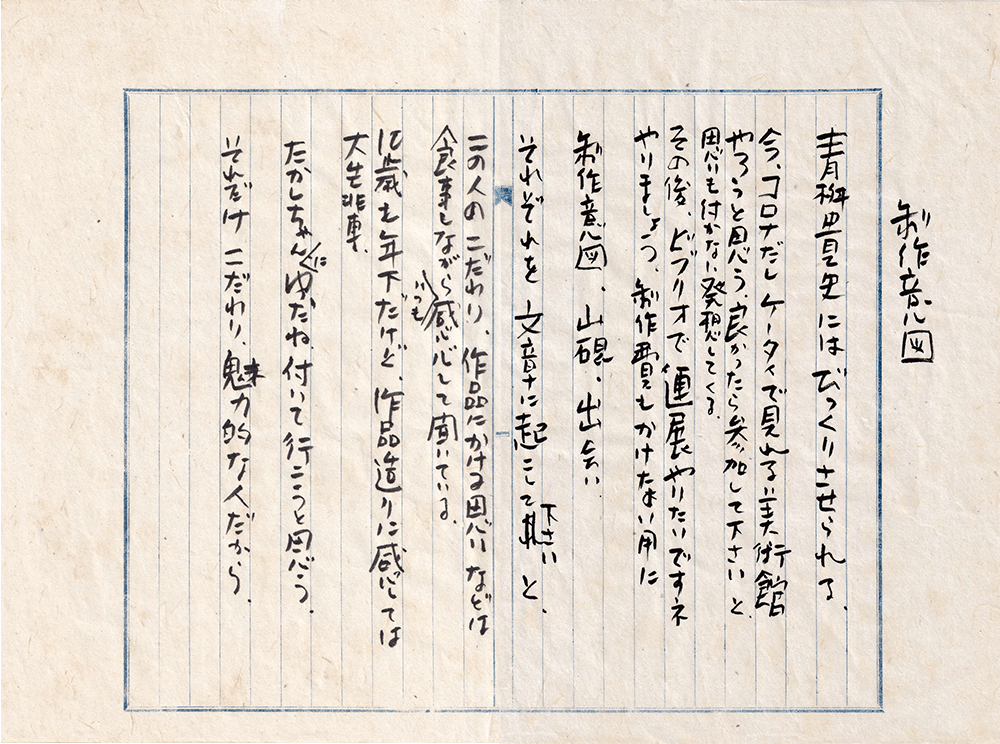 制作意図
青桝貴史にはびっくりさせられる、
今、コロナだしケータイで見れる美術館
やろうと思う、良かったら参加して下さいと、
思いも付かない発想してくる。
その後、ビブリオで硯展やりたいですネ
やりましょう、制作費もかけない用に
制作意図、山硯、出会い
それぞれを文章に起こして下さいと、
この人のこだわり、作品にかける思いなどは
食事しながらいつも感心して聞いている。
10歳も年下だけど、作品造りに感しては
大先輩、
たかしちゃんにゆだね付いて行こうと思う、
それだけこだわり、魅力的な人だから、